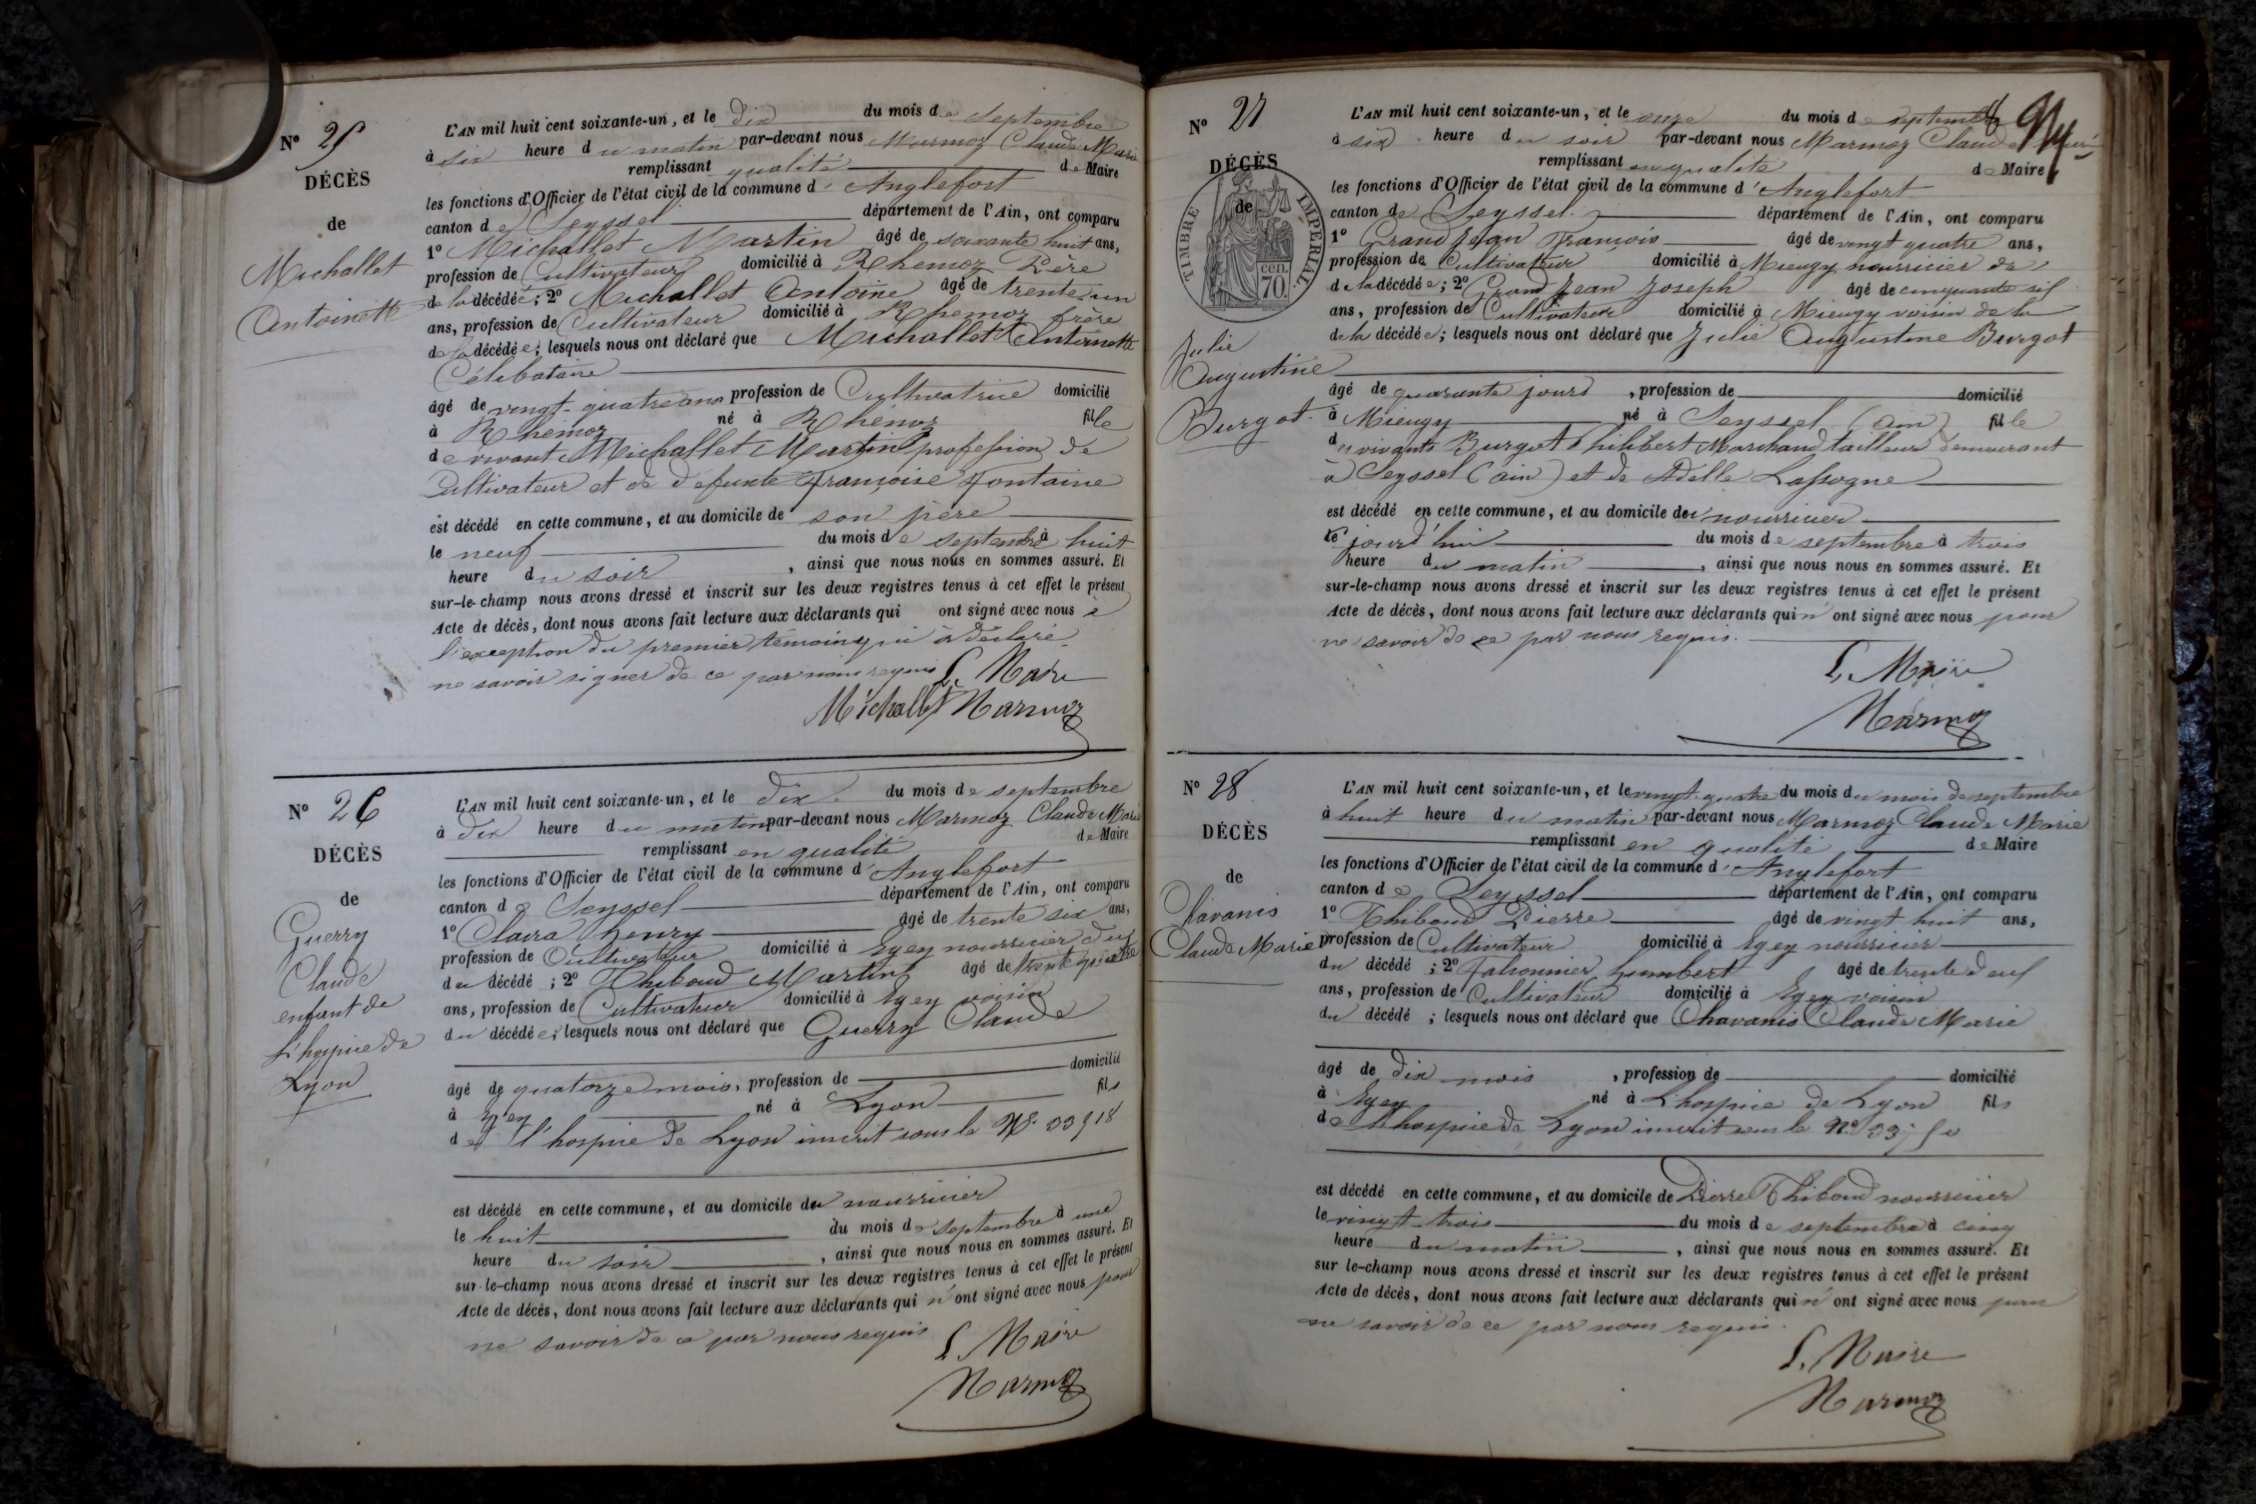 N° 25
DÉCÈS
de
Michallet
Antoinette
L'AN mil huit cent soixante-un, et le dix du mois de Septembre
à six heure du matin par-devant nous Marmoz Claude Marie
remplissant qualité de Maire
les fonctions d'Officier de l'état civil de la commune d' Anglefort
canton de Seyssel département de l'Ain, ont comparu
1° Michallet Martin âgé de soixante huit ans,
profession de Cultivateur domicilié à Rhemoz Père
de la décédée; 2° Michallet Antoine âgé de trente un
ans, profession de Cultivateur domicilié à Rhemoz frère
de la décédée; lesquels nous ont déclaré que Michallet Antoinette
Célibataire
âgé de vingt-quatre ans profession de Cultivatrice domicilié
à Rhémoz né à Rhémoz fille
de vivant Michallet Martin profession de
Cultivateur et de défunte Françoise Fontaine
est décédé en cette commune, et au domicile de son père
le neuf du mois de septembre à huit
heure du soir, ainsi que nous nous en sommes assuré. Et
sur-le-champ nous avons dressé et inscrit sur les deux registres tenus à cet effet le présent
Acte de décès, dont nous avons fait lecture aux déclarants qui ont signé avec nous à
l'exception du premier témoin qui a déclaré
ne savoir signer de ce par nous requis L. Maire
Michallet Marmoz
N° 26
DÉCÈS
de
Guerry
Claude
enfant de
l'hospice de
Lyon
L'AN mil huit cent soixante-un, et le dix du mois de septembre
à dix heure du matin par-devant nous Marmoz Claude Marie
remplissant en qualité de Maire
les fonctions d'Officier de l'état civil de la commune d' Anglefort
canton de Seyssel département de l'Ain, ont comparu
1° Claira henry âgé de trente six ans,
profession de Cultivateur domicilié à Eyey nourricier du
du décédé; 2° Thiboud Martin âgé de trente quatre
ans, profession de Cultivateur domicilié à Eyey voisin
du décédé; lesquels nous ont déclaré que Guerry Claude
âgé de quatorze mois, profession de domicilié
à Eyey né à Lyon fils
de l'hospice de Lyon inscrit sous le N°
est décédé en cette commune, et au domicile du nourricier
le huit du mois de septembre à une
heure du soir, ainsi que nous nous en sommes assuré. Et
sur-le-champ nous avons dressé et inscrit sur les deux registres tenus à cet effet le présent
Acte de décès, dont nous avons fait lecture aux déclarants qui n'ont signé avec nous pour
ne savoir de ce par nous requis L. Maire
Marmoz
N° 27
DÉCÈS
de
TIMBRE IMPÉRIAL
cen.
70.
Julie
Augustine
Burgot
L'AN mil huit cent soixante-un, et le onze du mois de septembre
à six heure du soir par-devant nous Marmoz Claude Marie
remplissant en qualité de Maire
les fonctions d'Officier de l'état civil de la commune d' Anglefort
canton de Seyssel département de l'Ain, ont comparu
1° Grand Jean François âgé de vingt quatre ans,
profession de Cultivateur domicilié à Mieugy nourricier de
de la décédée; 2° Grand Jean Joseph âgé de cinquante six
ans, profession de Cultivateur domicilié à Mieugy voisin de la
de la décédée; lesquels nous ont déclaré que Julie Augustine Burgot
âgé de quarante jours, profession de domicilié
à Mieugy né à Seyssel (ain) fille
de vivants Burgot Philibert Marchand tailleur demeurant
à Seyssel (ain) et de Adelle Lassogne
est décédé en cette commune, et au domicile de nourricier
le jourd'hui du mois de septembre à trois
heure du matin, ainsi que nous nous en sommes assuré. Et
sur-le-champ nous avons dressé et inscrit sur les deux registres tenus à cet effet le présent
Acte de décès, dont nous avons fait lecture aux déclarants qui n'ont signé avec nous pour
ne savoir de ce par nous requis.
L. Maire
Marmoz
N° 28
DÉCÈS
de
Chavanis
Claude Marie
L'AN mil huit cent soixante-un, et le vingt-quatre du mois du mois de septembre
à huit heure du matin par-devant nous Marmoz Claude Marie
remplissant en qualité de Maire
les fonctions d'Officier de l'état civil de la commune d' Anglefort
canton de Seyssel département de l'Ain, ont comparu
1° Thiboud Pierre âgé de vingt huit ans,
profession de Cultivateur domicilié à Eyey nourricier
du décédé; 2° humbert âgé de trente deuf
ans, profession de Cultivateur domicilié à Eyey voisin
du décédé; lesquels nous ont déclaré que Chavanis Claude Marie
âgé de dix mois, profession de domicilié
à Eyey né à L'hospice de Lyon fils
de l'hospice de Lyon inscrit sous le N°
est décédé en cette commune, et au domicile de Pierre Thiboud nourricier
le vingt-trois du mois de septembre à cinq
heure du matin, ainsi que nous nous en sommes assuré. Et
sur le-champ nous avons dressé et inscrit sur les deux registres tenus à cet effet le présent
Acte de décès, dont nous avons fait lecture aux déclarants qui n'ont signé avec nous pour
ne savoir de ce par nous requis.
L. Maire
Marmoz